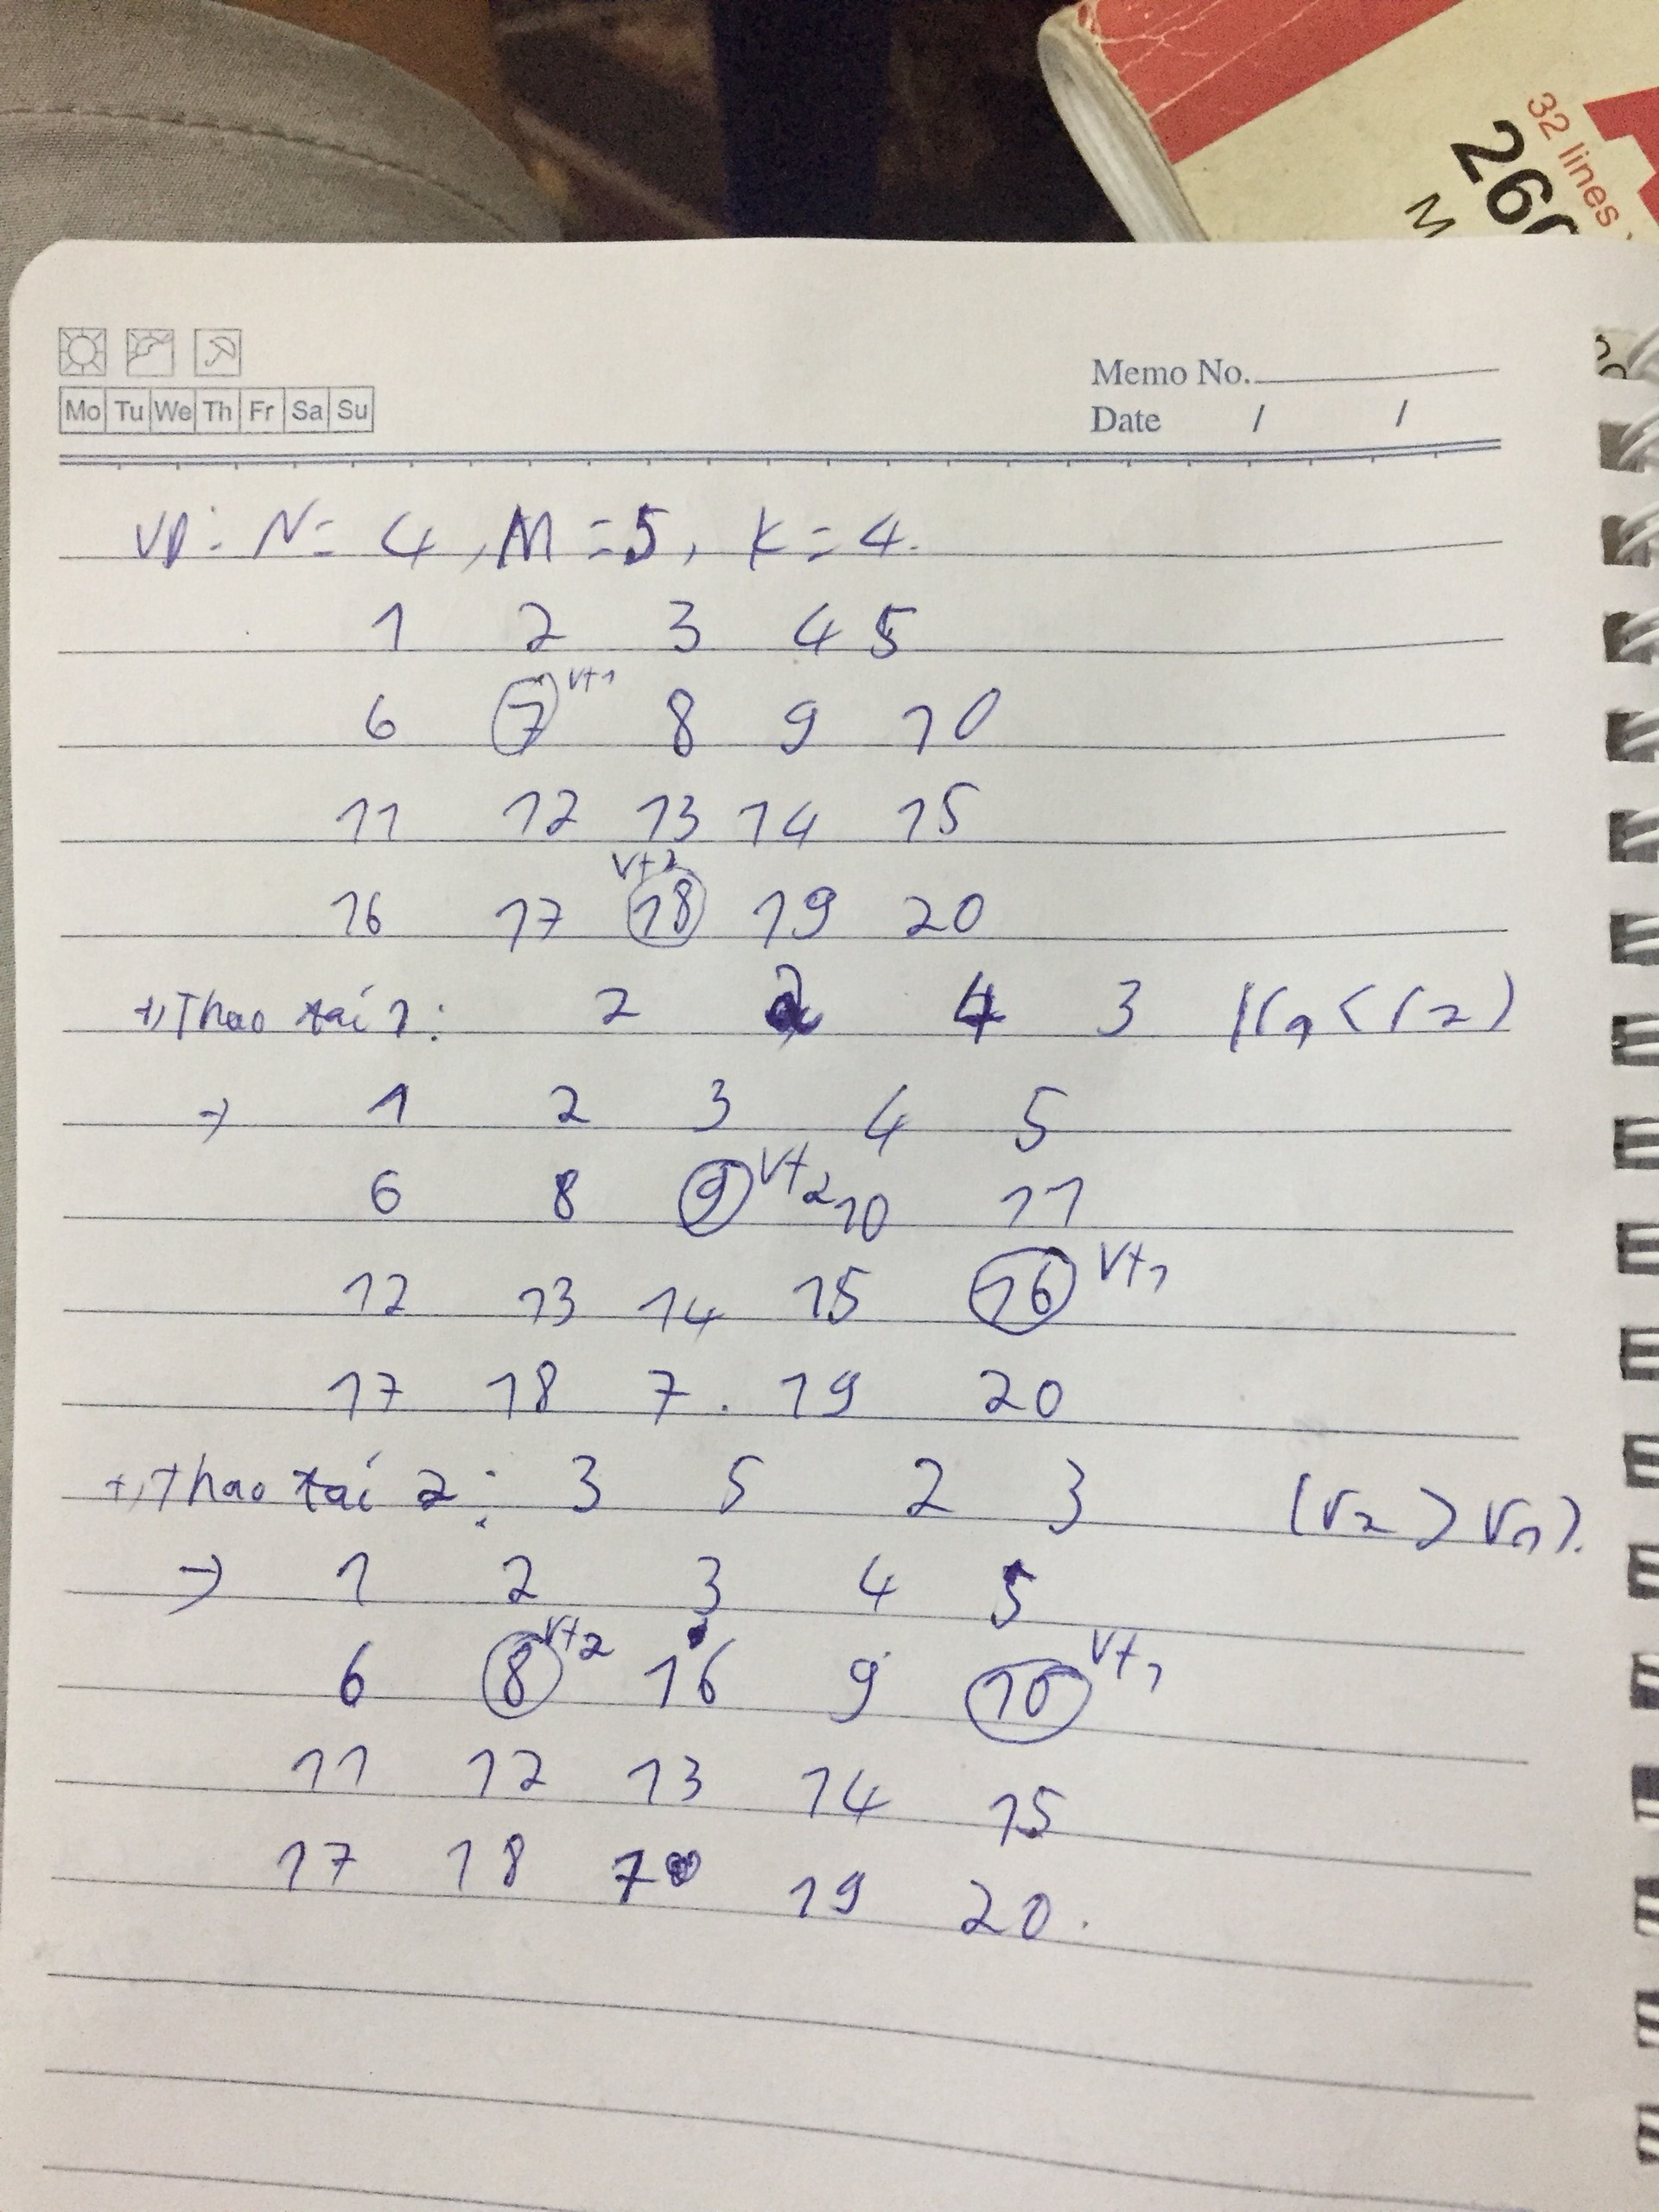 32 lines
260
M
Mo Tu We Th Fr Sa Su
Memo No.
Date / /
VD: N = 4, M = 5, K = 4.
1 2 3 4 5
6 7 vt1 8 9 10
11 12 13 14 15
vt2
16 17 18 19 20
+, Thao tái 1: 2 2 4 3 (r1 < r2)
→ 1 2 3 4 5
6 8 9 vt2 10 11
12 13 14 15 16 vt1
17 18 7 . 19 20
+, Thao tái 2: 3 5 2 3 (r2 > r1).
→ 1 2 3 4 5
6 8 vt2 16 9 10 vt1
11 12 13 14 15
17 18 7 19 20.